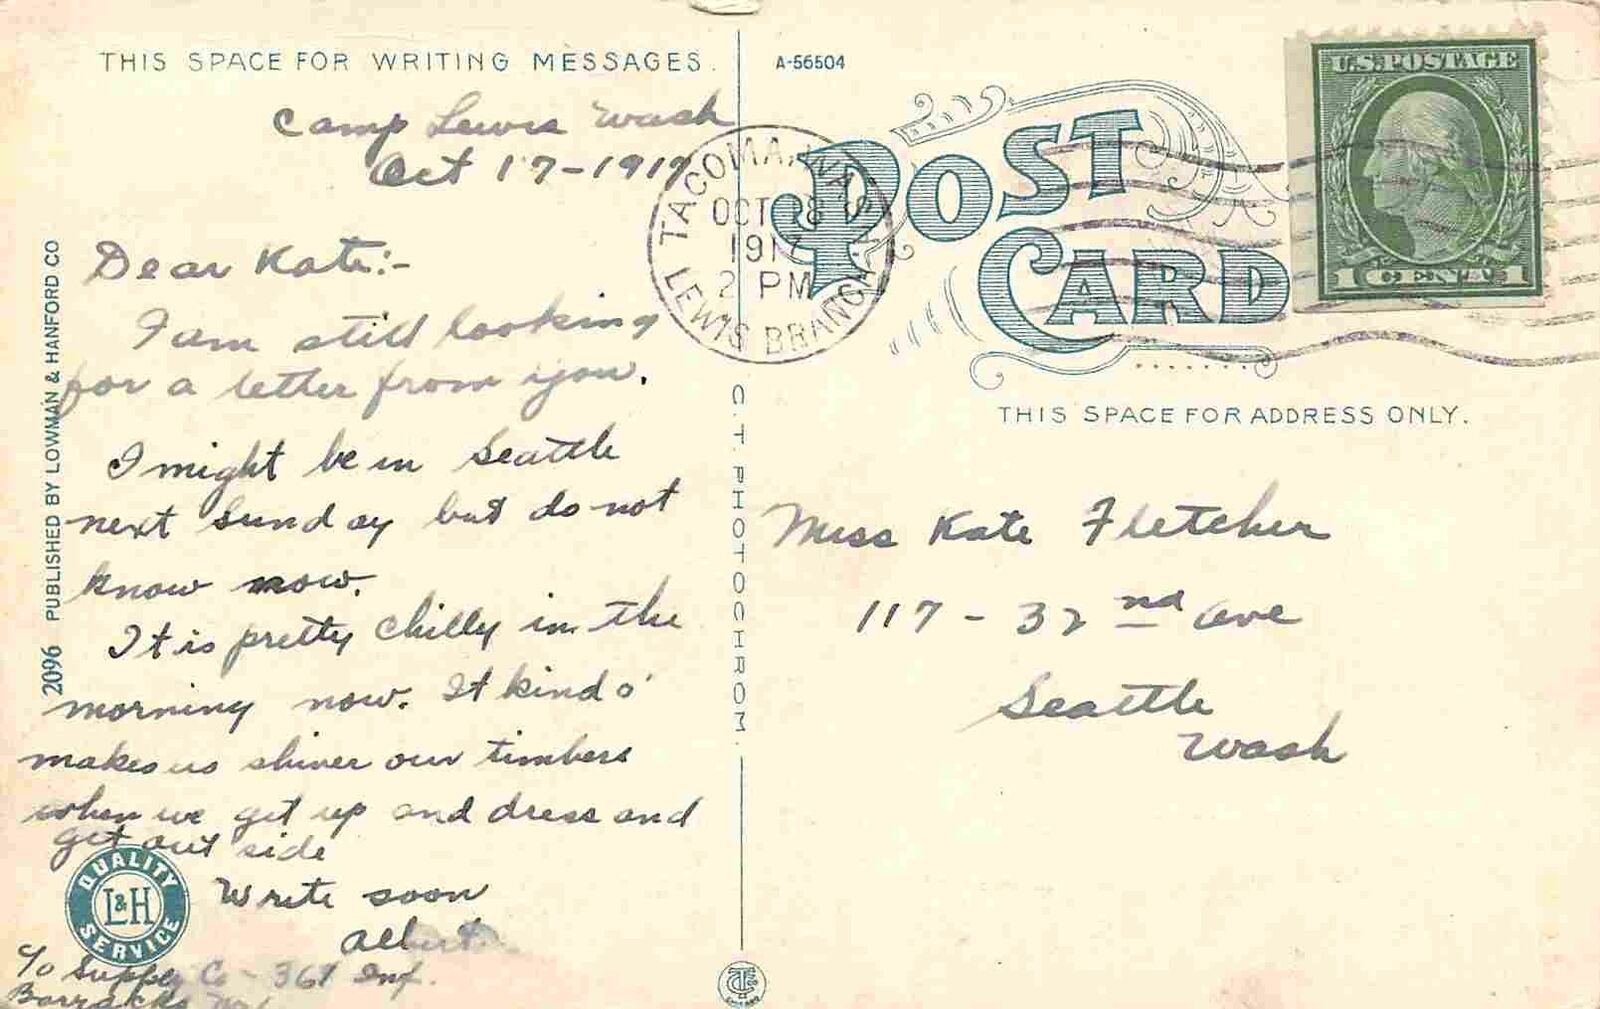 THIS SPACE FOR WRITING MESSAGES.
Camp Lewis Wash
Oct 17-1917
Dear Kate:-
I am still looking
for a letter from you.
I might be in Seattle
next Sunday but do not
know now.
It is pretty chilly in the
morning now. It kind o'
makes us shiver our timbers
when we get up and dress and
get out side
Write soon
Albert
c/o Supply Co - 361 Inf.
Barracks
QUALITY
L&H
SERVICE
2096 PUBLISHED BY LOWMAN & HANFORD CO
C. T. PHOTOCHROM.
A-56504
POST
CARD
TACOMA, WASH.
OCT 18
1917
2 PM
LEWIS BRANCH
U.S. POSTAGE
1 CENT 1
THIS SPACE FOR ADDRESS ONLY.
Miss Kate Fletcher
117 - 32nd Ave
Seattle
Wash